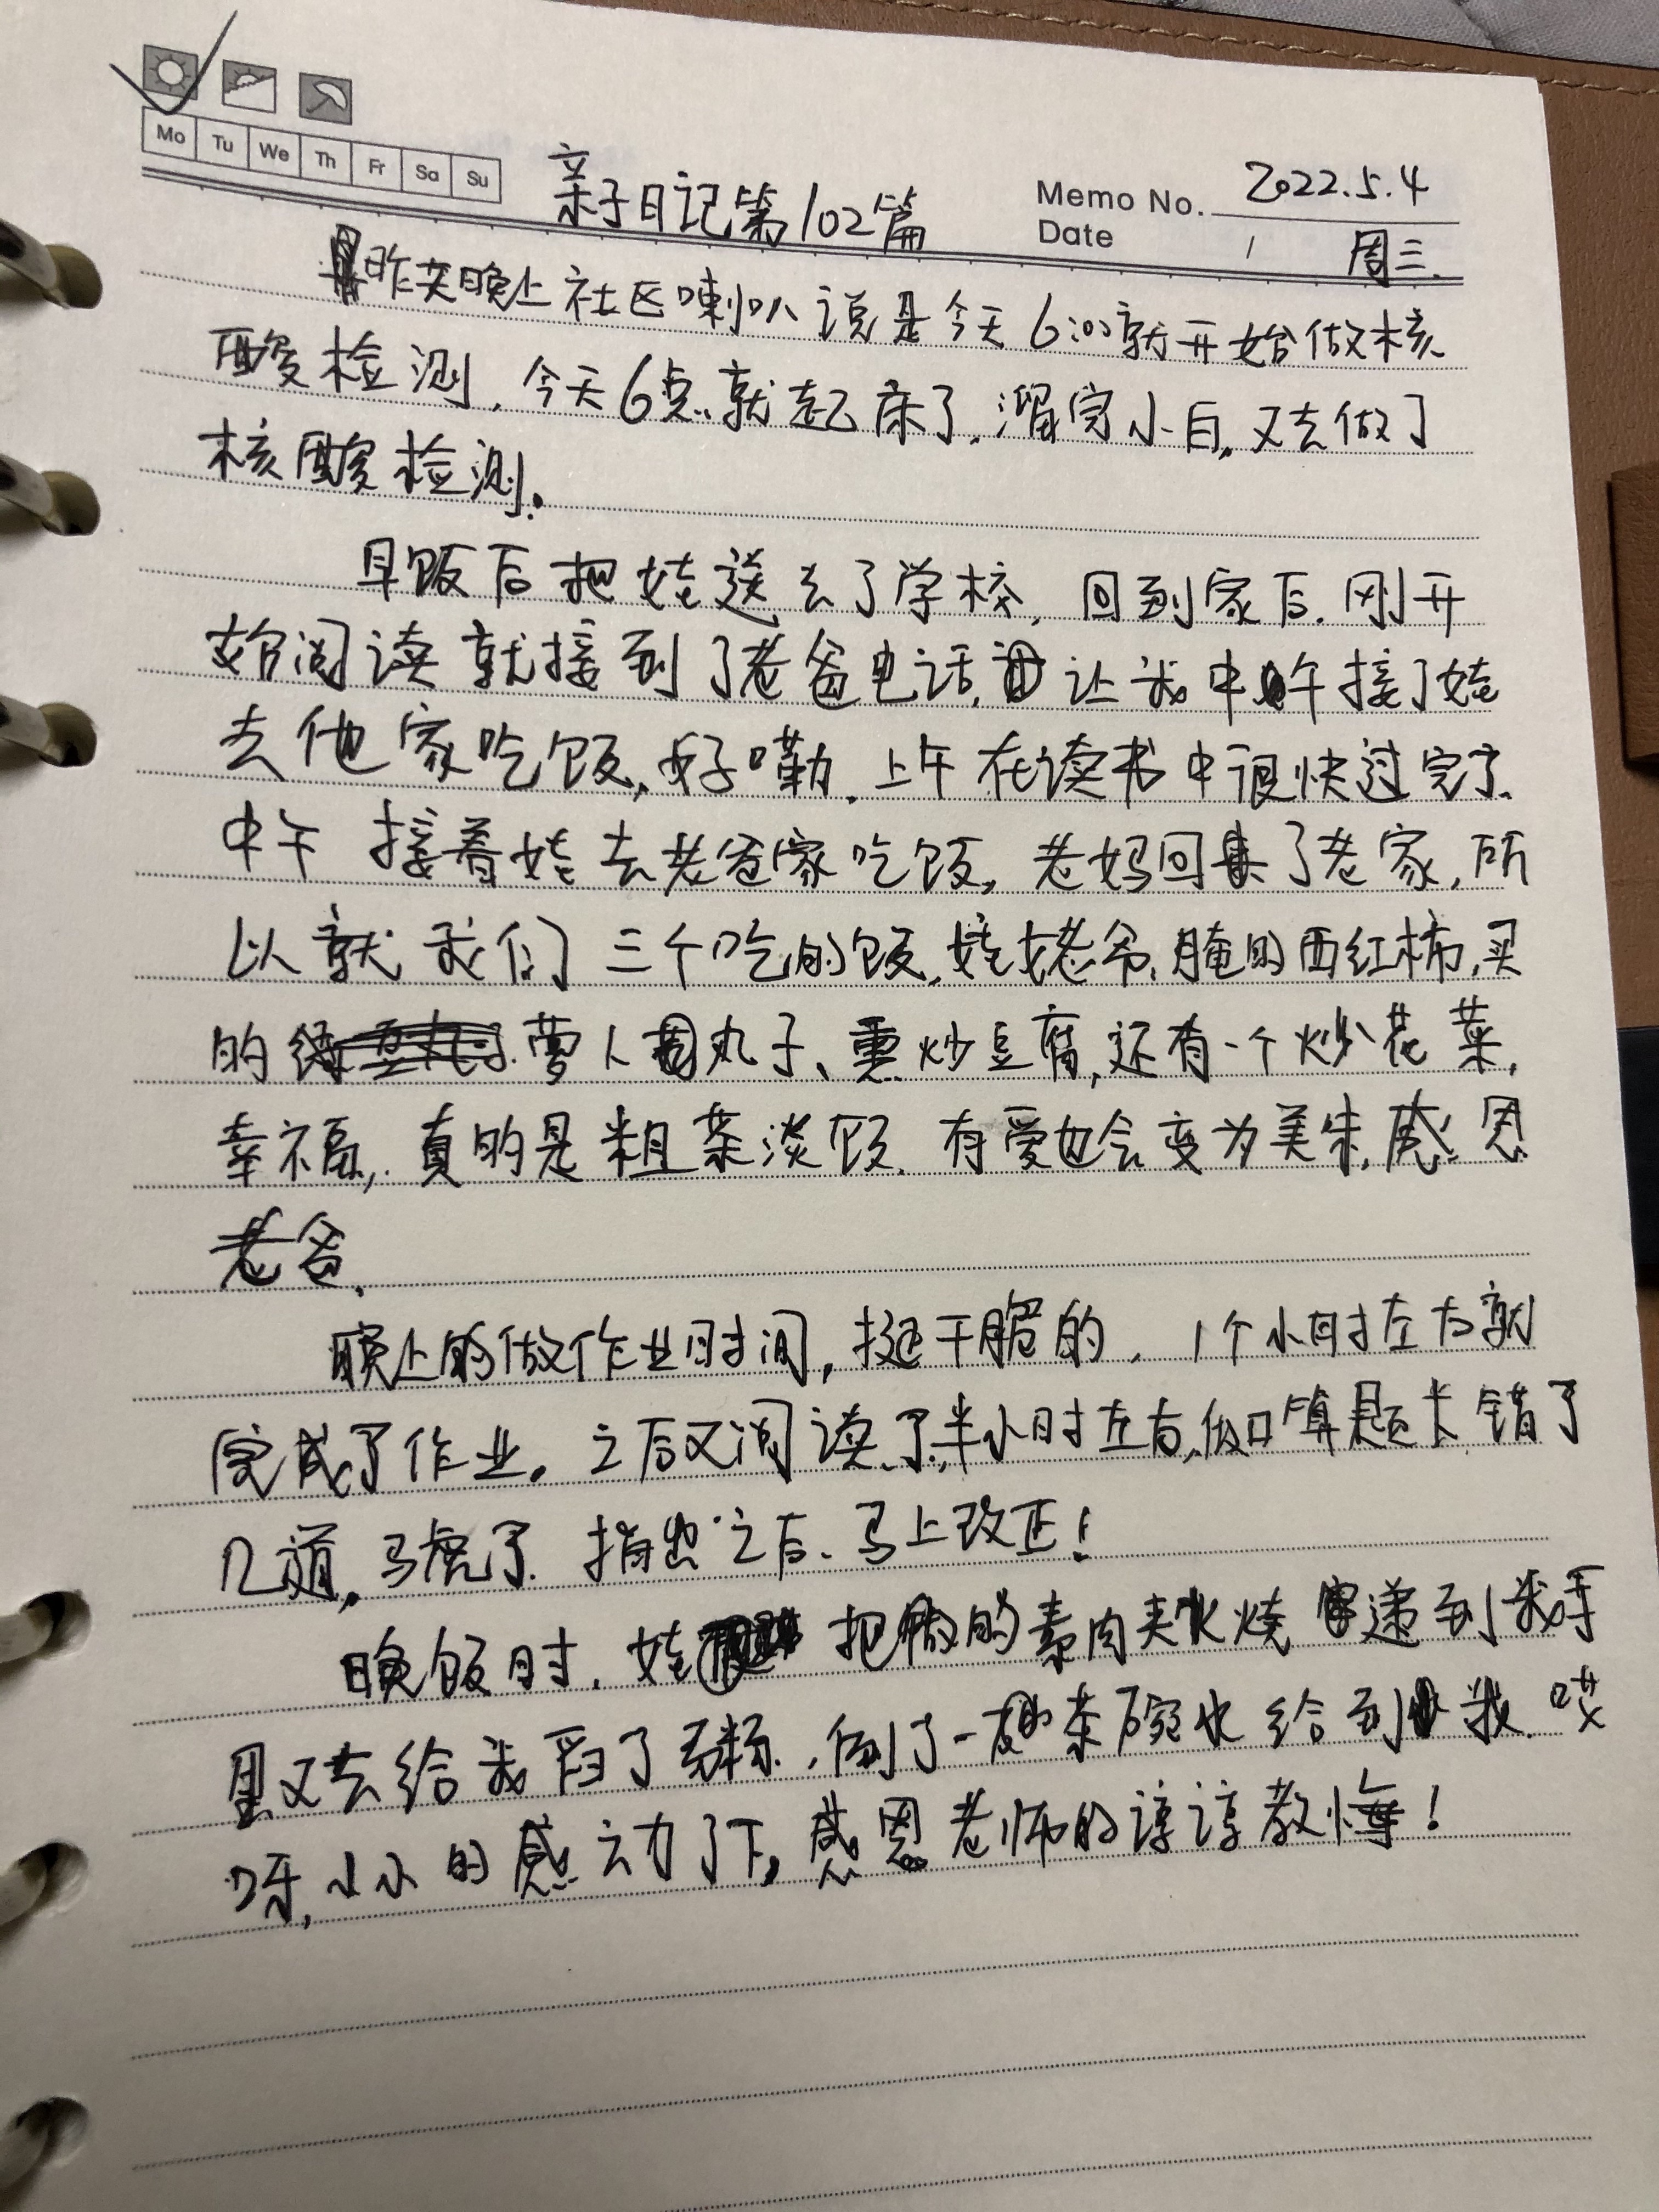 Mo Tu We Th Fr Sa Su
亲子日记第102篇
Memo No. 2022.5.4
Date / 周三.
昨天晚上社区喇叭说是今天6:00就开始做核
酸检测,今天6点就起床了,溜完小白,又去做了
核酸检测.
早饭后把娃送去了学校,回到家后.刚开
始阅读就接到了老爸电话,让我中午接了娃
去他家吃饭,好嘞.上午在读书中很快过完了.
中午接着娃去老爸家吃饭,老妈回了老家,所
以就我们三个吃的饭,娃老爷,腌的西红柿,买
的萝卜丸子、熏炒豆腐,还有一个炒花菜,
幸福,真的是粗茶淡饭.有爱也会变为美味,感恩
老爸.
晚上的做作业时间,挺干脆的,1个小时左右就
完成了作业.之后又阅读了半小时左右,做口算题卡错了
几道,马虎了.指出之后、马上改正!
晚饭时.娃把做的素肉夹火烧递到我手
里又去给我舀了,倒了一茶碗水给到我.哎
呀,小小的感动了下,感恩老师的谆谆教悔!